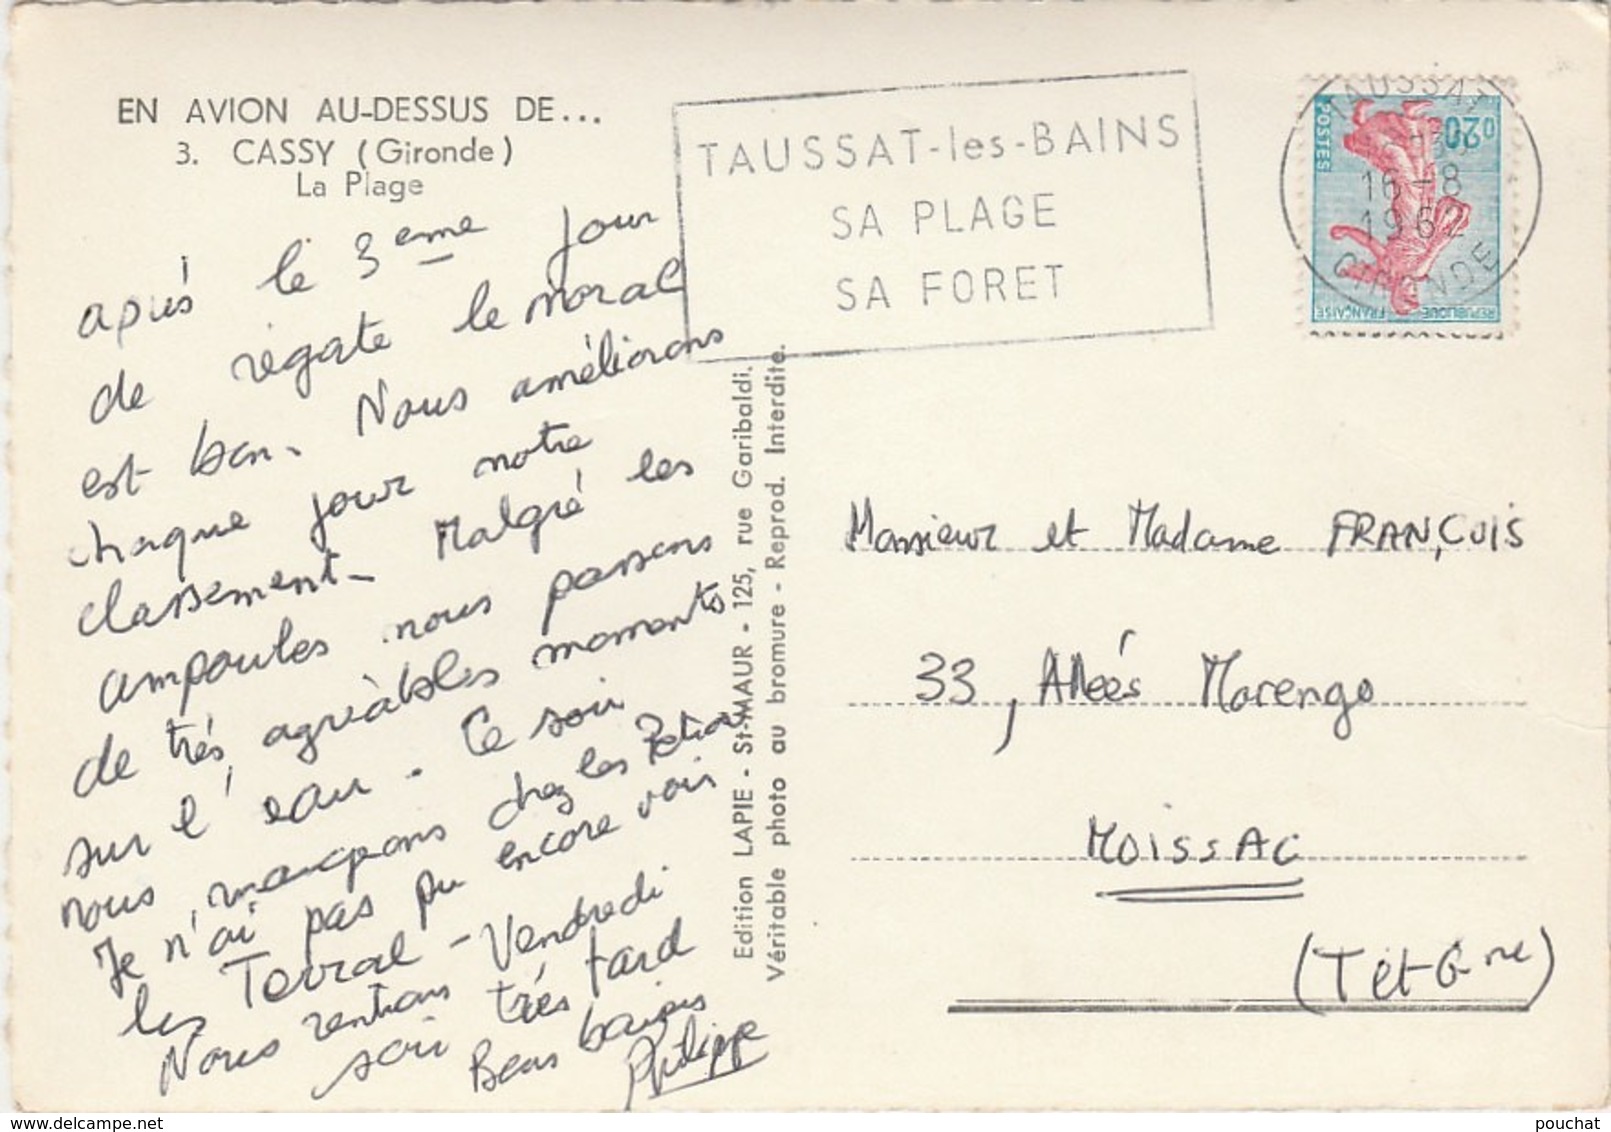 EN AVION AU-DESSUS DE...
3. CASSY (Gironde)
La Plage
TAUSSAT-les-BAINS
SA PLAGE
SA FORET
TAUSSAT
16-8
1962
GIRONDE
0,20
POSTES
REPUBLIQUE FRANÇAISE
après le 3eme jour
de régate le moral
est bon. Nous améliorons
chaque jour notre
classement. Malgré les
ampoules nous passons
de trés agréables moments
sur l'eau. Ce soir
nous mangeons chez les
Je n'ai pas pu encore voir
les Terral - Vendredi
Nous rentrons
soir trés tard
Bons baisers
Philippe
Edition LAPIE - St-MAUR - 125, rue Garibaldi.
Véritable photo au bromure - Reprod. Interdite.
Monsieur et Madame FRANÇOIS
33, Allées Marengo
MOISSAC
(Tet-Gne)
www.delcampe.net
pouchat